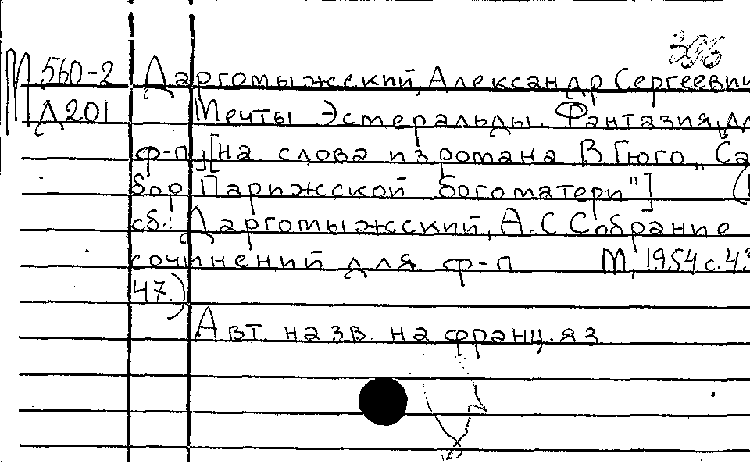 М 560-2 Даргомыжский, Александр Сергеевич
Д 201 Мечты Эсмеральды. Фантазия, дл
ф-п. [на слова из романа В. Гюго „Со
бор Парижской богоматери"] (
сб.: Даргомыжский, А. С Собрание
сочинений для ф-п М, 1954 с. 43
47.)
Авт. назв. на франц. яз